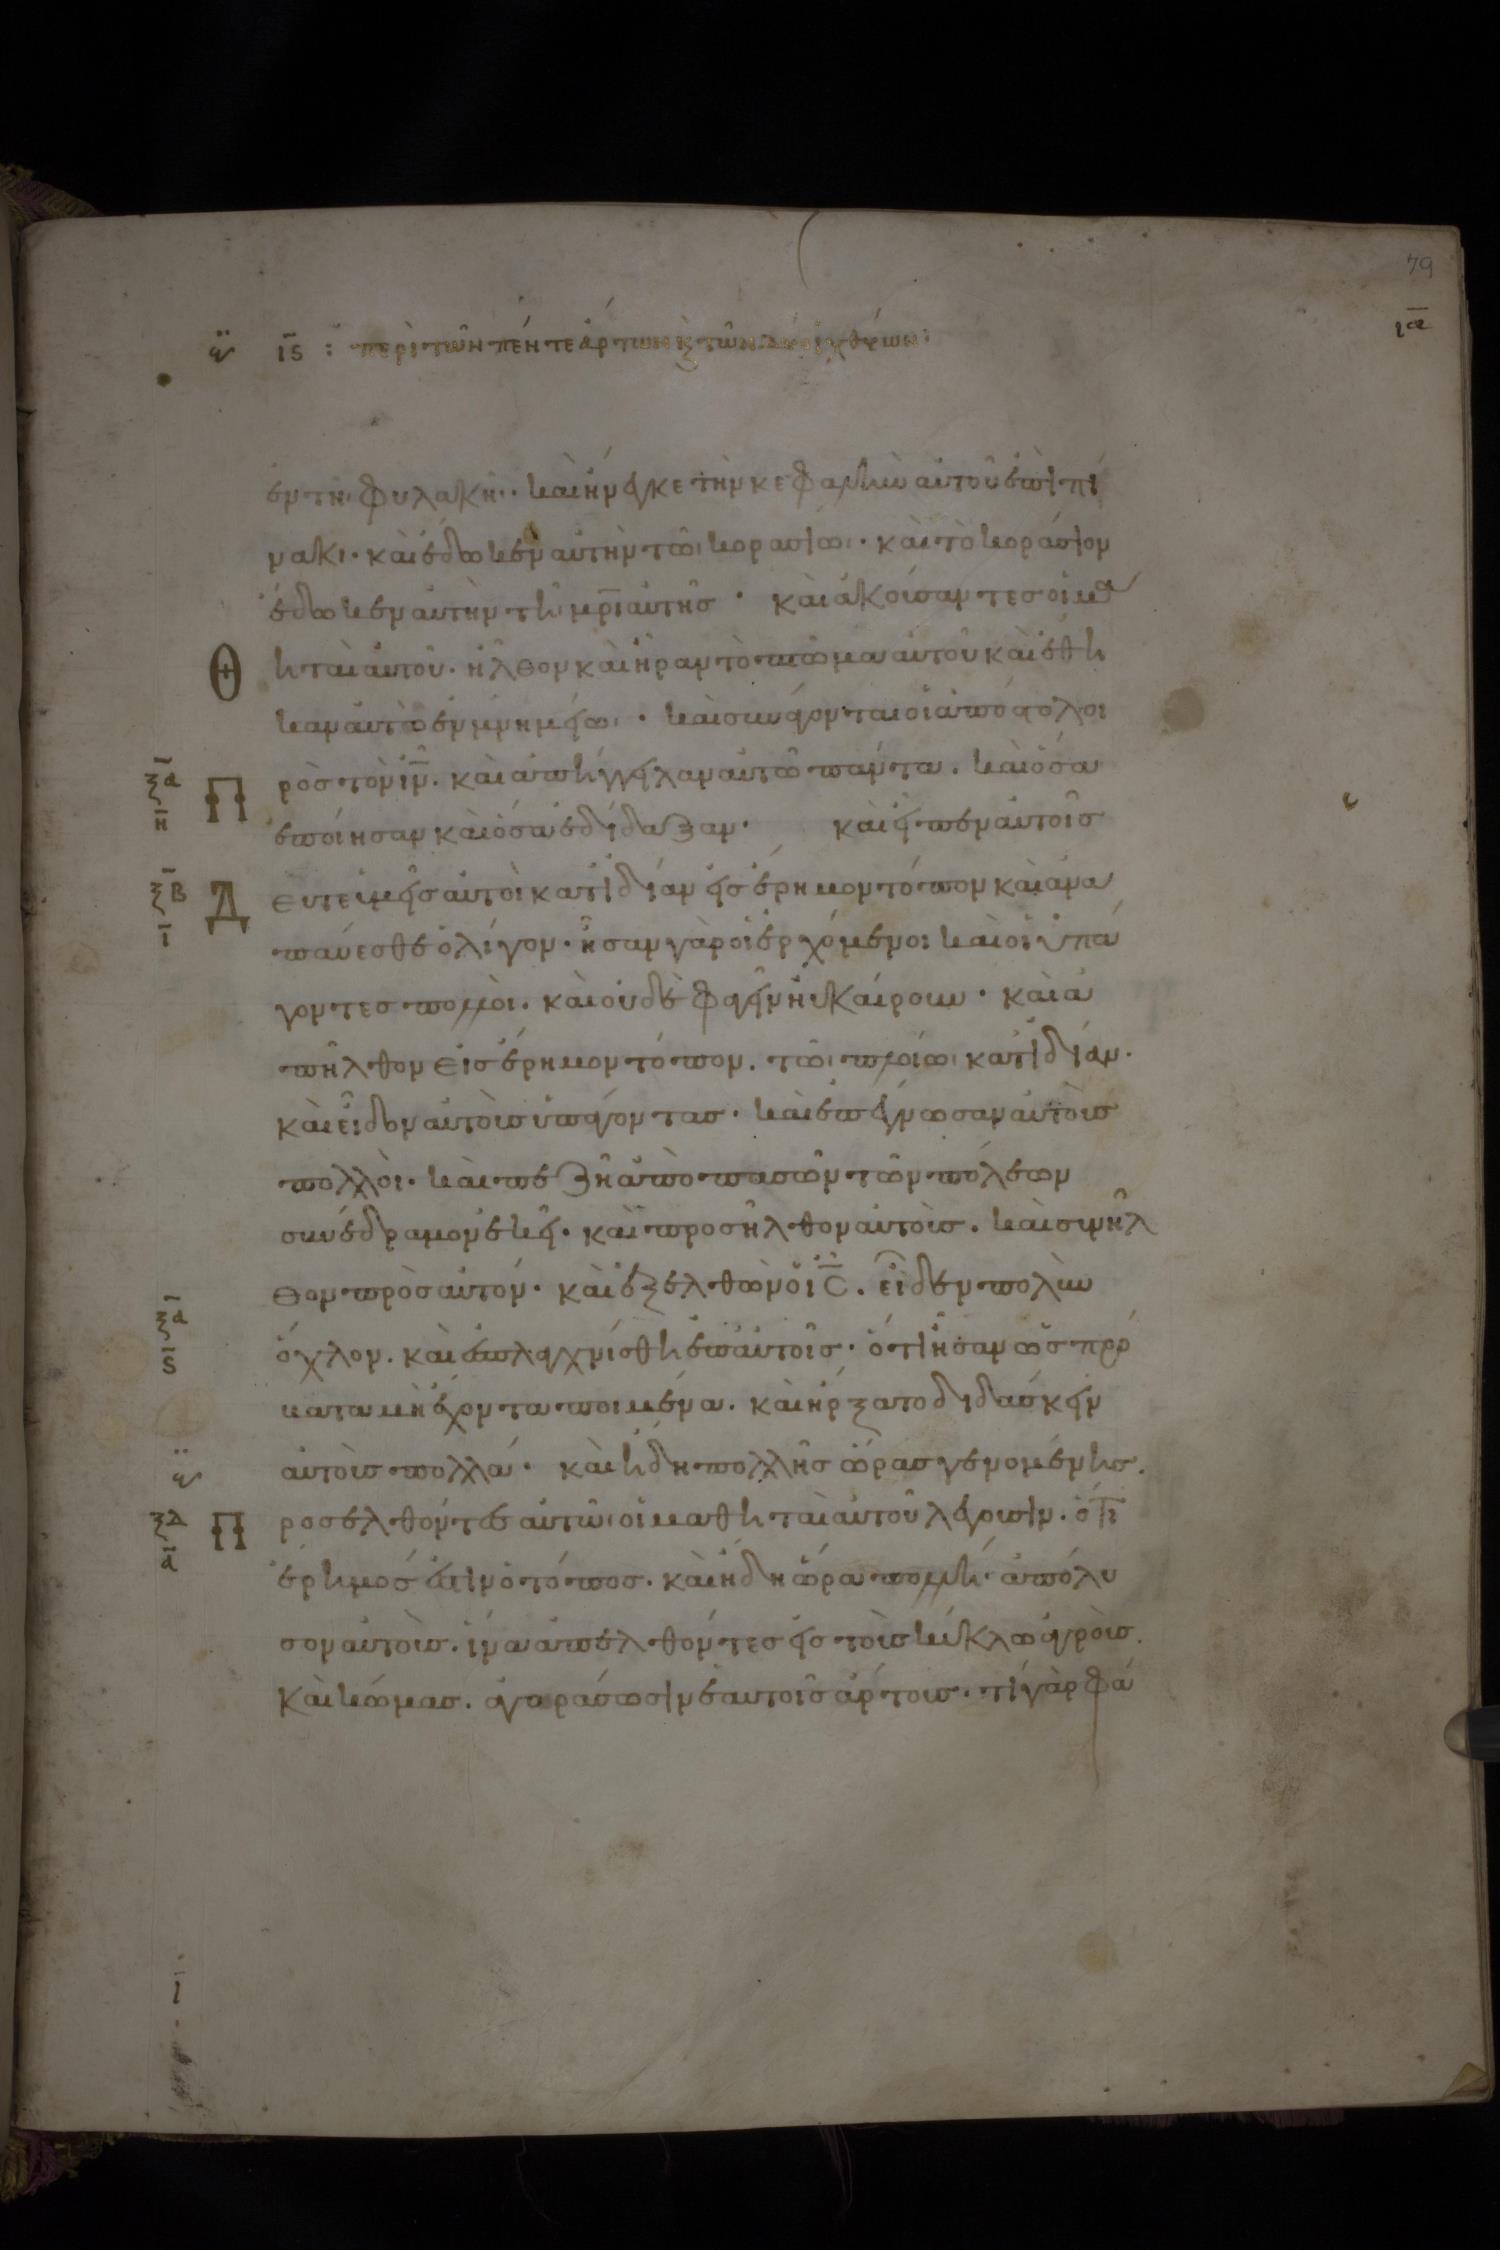 79
ια
ις : περὶ τῶν πέντε ἄρτων κ τῶν δύο ἰχθύων :
ἐν τῆ φυλακῆ· καὶ ἤνεγκε τὴν κεφαλὴν αὐτοῦ ἐπὶ πί
νακι· καὶ ἔδωκεν αὐτὴν τῶ κορασίω· καὶ τὸ κοράσιον
ἔδωκεν αὐτὴν τῆ μρι αὐτῆς · καὶ ἀκούσαντες οἱ μα
Θ ηταὶ αὐτοῦ· ἦλθον καὶ ἦραν τὸ πτῶμα αὐτοῦ καὶ ἔθη
καν αὐτὸ ἐν μνημείω · καὶ συνάγονται οἱ ἀπόστολοι
ξα
η
Π ρὸς τὸν ιν. καὶ ἀπήγγειλαν αὐτῶ πάντα. καὶ ὅσα
ἐποίησαν καὶ ὅσα ἐδίδαξαν· καὶ εἶπεν αὐτοῖς
ξβ
ι
Δ εῦτε ὑμεῖς αὐτοὶ κατ ἰδίαν εἰς ἔρημον τόπον καὶ ἀνα
παύεσθε ὀλίγον· ἦσαν γὰρ οἱ ἐρχόμενοι καὶ οἱ ὑπά
γοντες πολλοὶ. καὶ οὐδὲ φαγεῖν ηὐκαίρουν · καὶ ἀ
πῆλθον εἰς ἔρημον τόπον. τῶ πλοίω κατ ἰδίαν.
καὶ εἶδον αὐτοὺς ὑπάγοντας. καὶ ἐπέγνωσαν αὐτοὺς
πολλοὶ. καὶ πεζῆ ἀπὸ πασῶν τῶν πόλεων
συνέδραμον ἐκεῖ. καὶ προσῆλθον αὐτοὺς. καὶ συνῆλ
θον πρὸς αὐτόν. καὶ ἐξελθὼν ὁ ις. εἶδεν πολὺν
ξα
ς
ὄχλον. καὶ ἐσπλαγχνίσθη ἐπ αὐτοῖς· ὅτι ἦσαν ὡς πρό
βατα μὴ ἔχοντα ποιμένα. καὶ ἤρξατο διδάσκειν
αὐτοὺς πολλά· καὶ ἤδη πολλῆς ὥρας γενομένης.
ξδ
α
Π ροσελθόντες αὐτῶ οἱ μαθηταὶ αὐτοῦ λέγουσιν. ὅτι
ἔρημός ἐστιν ὁ τόπος. καὶ ἤδη ὥρα πολλή· ἀπόλυ
σον αὐτοὺς. ἵνα ἀπελθόντες εἰς τοὺς κύκλω ἀγροὺς.
καὶ κώμας. ἀγοράσωσιν ἑαυτοῖς ἄρτους. τί γὰρ φά
ι